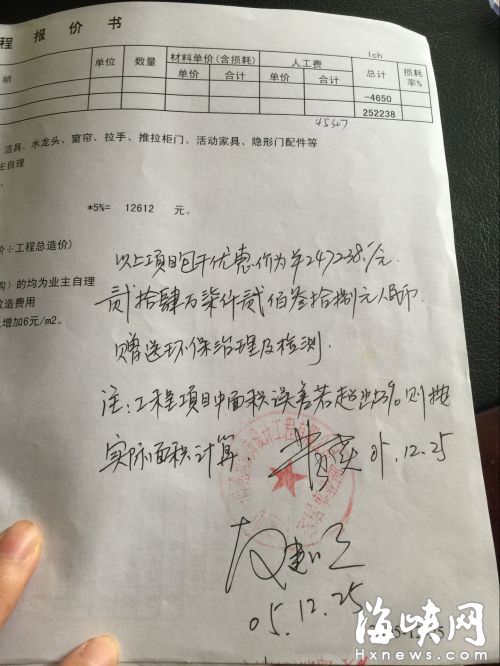 程 报 价 书
lch
明 单位 数量 材料单价(含损耗) 人工费 总计 损耗率%
单价 合计 单价 合计
-4650
252238
洁具、水龙头、窗帘、拉手、推拉柜门、活动家具、隐形门配件等
主自理
*5%= 12612 元。
价÷工程总造价)
以上项目包干优惠价为¥247238./元.
购)的均为业主自理
贰拾肆万柒仟贰佰叁拾捌元人民币.
改造费用
增加6元/m2。
赠送环保治理及检测.
注:工程项目中面积误差若超出3%则按
实际面积计算.
05.12.25
05.12.25
海峡网
Hxnews.com